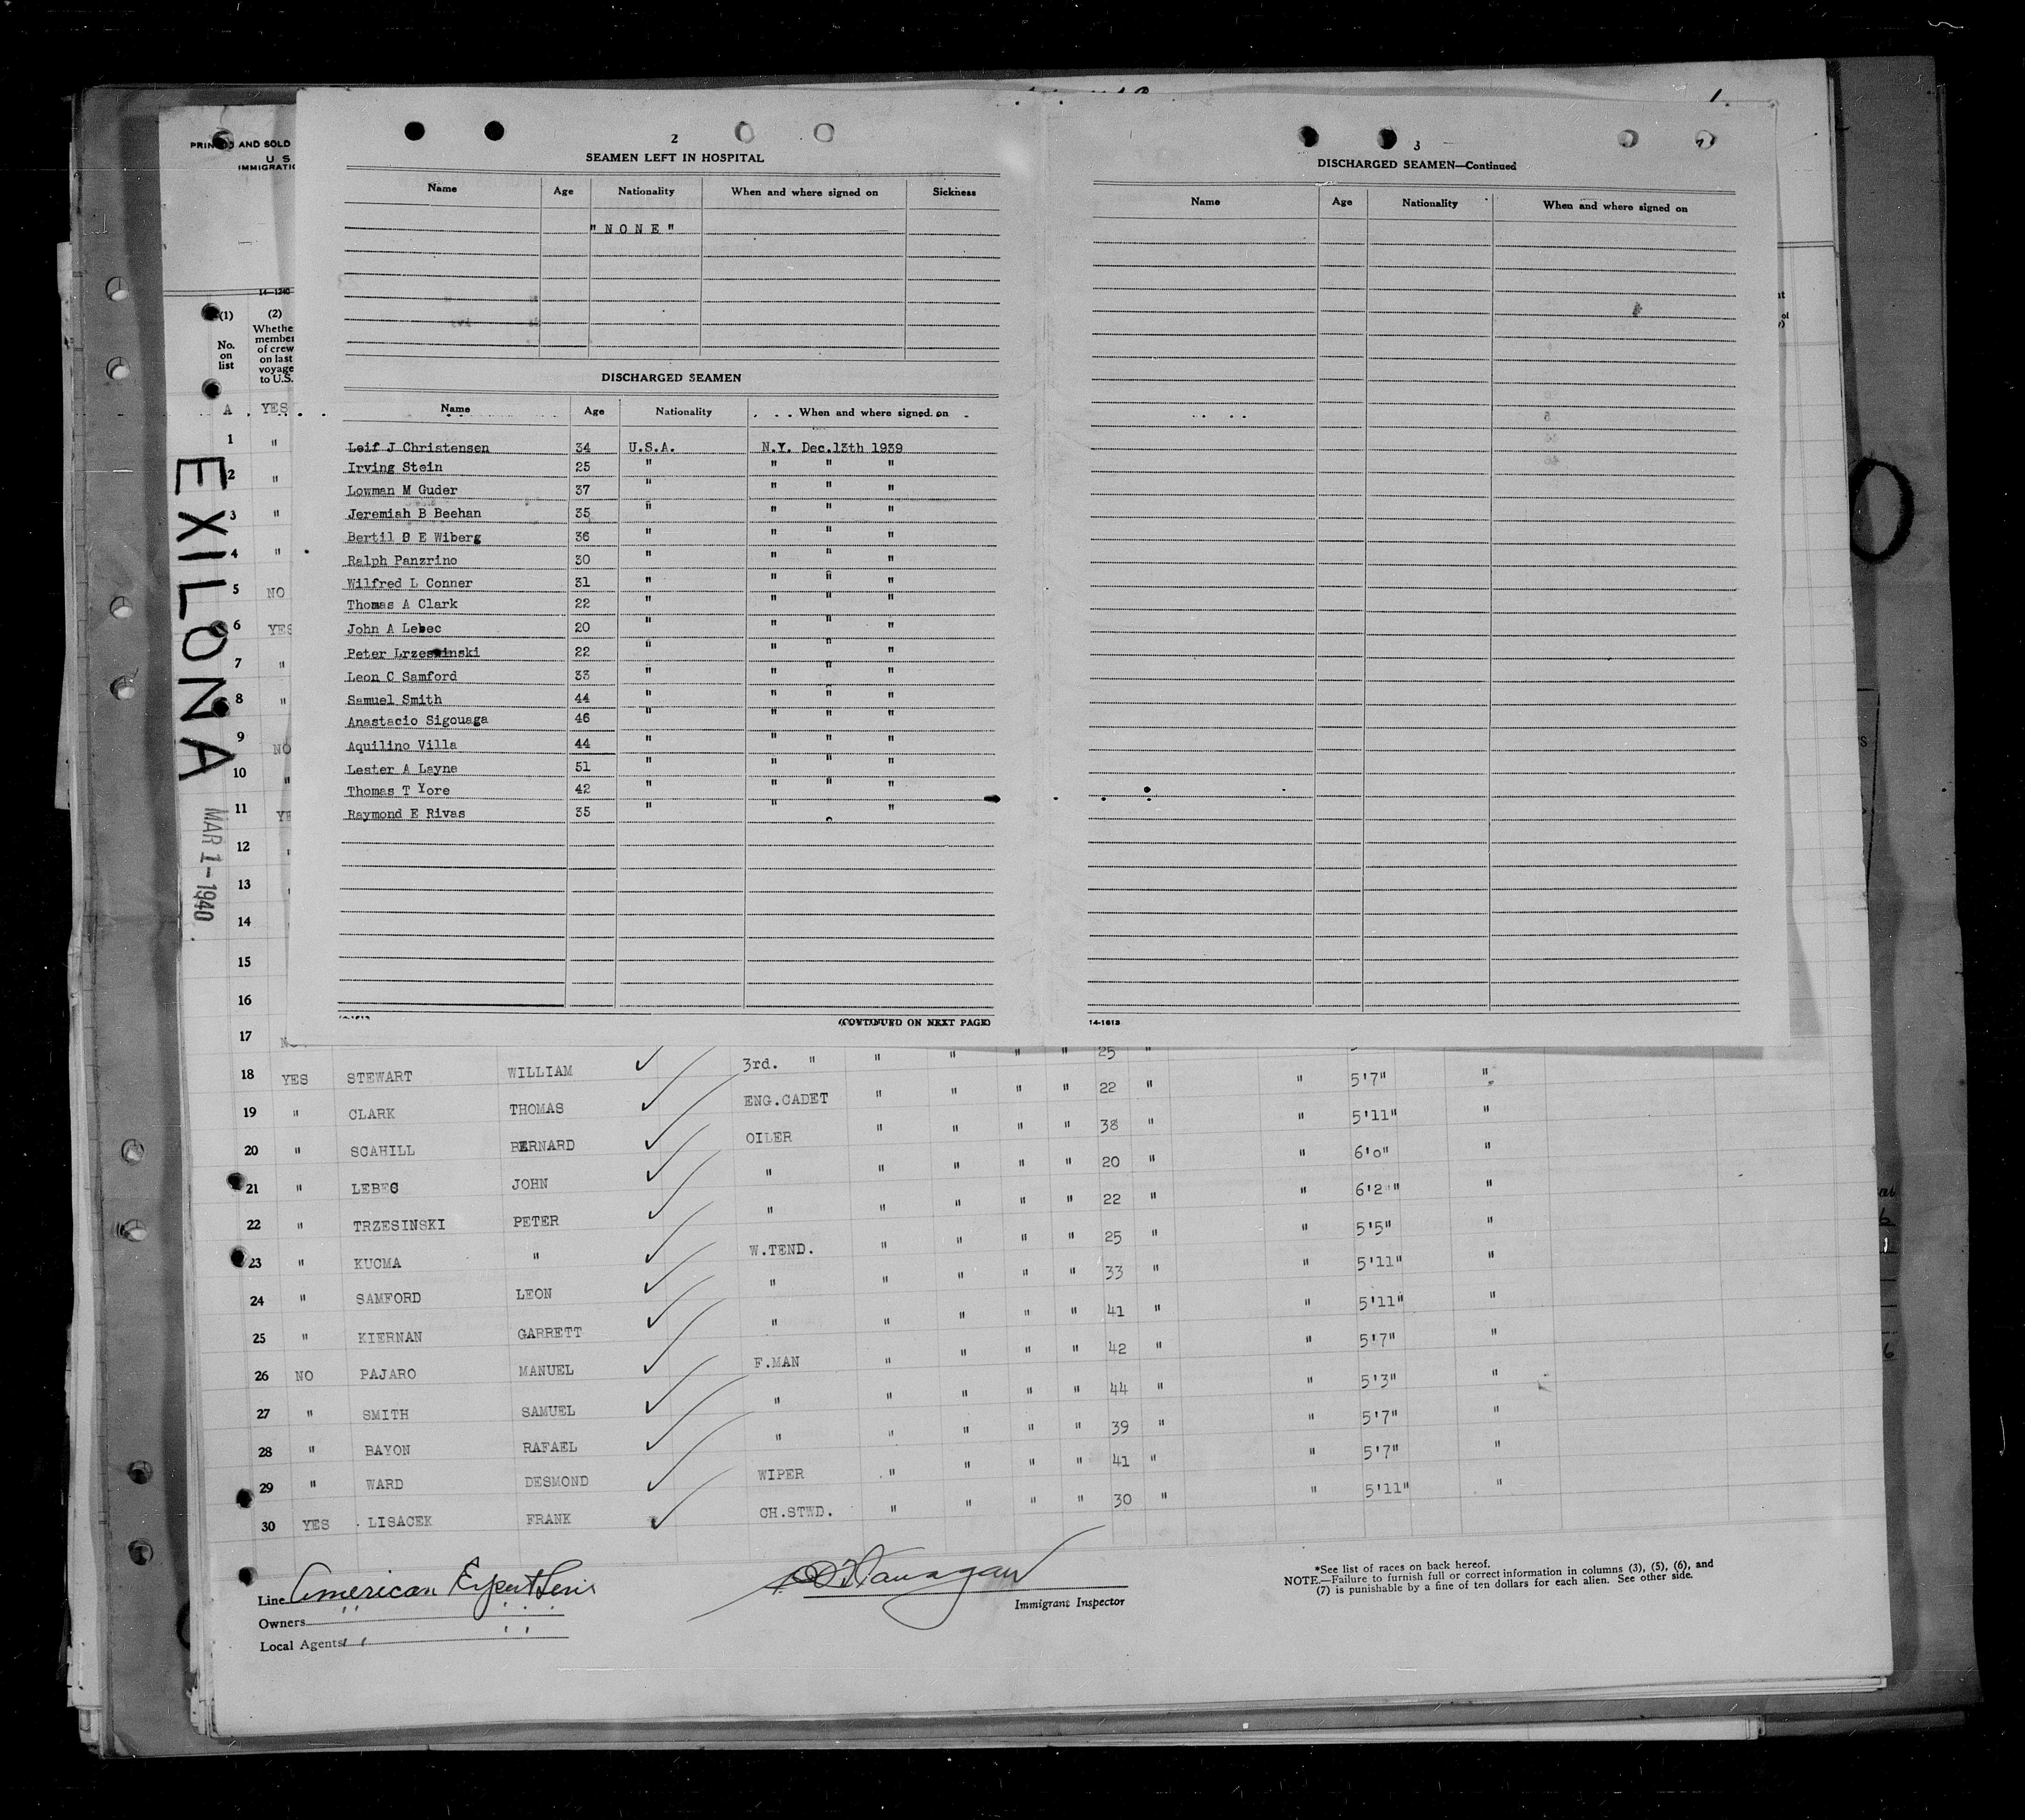 PRINTED AND SOLD
U S
IMMIGRATIO
14-1240
(1) (2)
No. on list
Whethe
member
of crew
on last
voyage
to U.S.
A YES
1 "
2 "
3 "
4 "
5 NO
6 YES
7 "
8 "
9 NO
10 "
11 YE
12 "
13
14
15
16
17
EXILONA
MAR 1-1940
2
SEAMEN LEFT IN HOSPITAL
Name Age Nationality When and where signed on Sickness
"NONE"
DISCHARGED SEAMEN
Name Age Nationality When and where signed on
Leif J Christensen 34 U.S.A. N.Y. Dec.13th 1939
Irving Stein 25 " " " "
Lowman M Guder 37 " " " "
Jeremiah B Beehan 35 " " " "
Bertil B E Wiberg 36 " " " "
Ralph Panzrino 30 " " " "
Wilfred L Conner 31 " " " "
Thomas A Clark 22 " " " "
John A Lebec 20 " " " "
Peter Lrzesinski 22 " " " "
Leon C Samford 33 " " " "
Samuel Smith 44 " " " "
Anastacio Sigouaga 46 " " " "
Aquilino Villa 44 " " " "
Lester A Layne 51 " " " "
Thomas T Yore 42 " " " "
Raymond E Rivas 35 " " "
(CONTINUED ON NEXT PAGE)
3
DISCHARGED SEAMEN—Continued
Name Age Nationality When and where signed on
14-1613
3rd. " " " " " 25 "
18 YES STEWART WILLIAM ENG.CADET " " " " 22 " " 5'7" "
19 " CLARK THOMAS OILER " " " " 38 " " 5'11" "
20 " SCAHILL BERNARD " " " " " 20 " " 6'0" "
21 " LEBEC JOHN " " " " " 22 " " 6'2" "
22 " TRZESINSKI PETER W.TEND. " " " " 25 " " 5'5" "
23 " KUCMA " " " " " " 33 " " 5'11" "
24 " SAMFORD LEON " " " " " 41 " " 5'11" "
25 " KIERNAN GARRETT F.MAN " " " " 42 " " 5'7" "
26 NO PAJARO MANUEL " " " " " 44 " " 5'3" "
27 " SMITH SAMUEL " " " " " 39 " " 5'7" "
28 " BAYON RAFAEL WIPER " " " " 41 " " 5'7" "
29 " WARD DESMOND CH.STWD. " " " " 30 " " 5'11" "
30 YES LISACEK FRANK
Line American Export Lines
Owners " "
Local Agents " "
Immigrant Inspector
*See list of races on back hereof.
NOTE.—Failure to furnish full or correct information in columns (3), (5), (6), and
(7) is punishable by a fine of ten dollars for each alien. See other side.